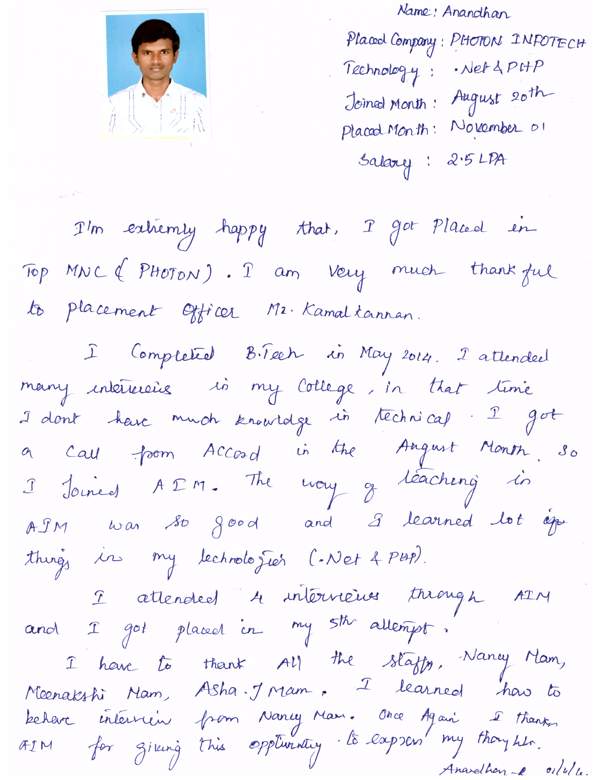 Name: Anandhan
Placed Company: PHOTON INFOTECH
Technology : .Net & PHP
Joined Month: August 20th
Placed Month: November 01
Salary : 2.5 LPA
I'm extremly happy that, I got Placed in
Top MNC ( PHOTON ). I am very much thankful
to placement Officer Mr. Kamalkannan.
I Completed B.Tech in May 2014. I attended
many interviews in my College, in that time
I dont have much knowldge in technical. I got
a call from Accord in the August Month. So
I Joined AIM. The way of teaching in
AIM was so good and I learned lot of
things in my technologies (.Net & PHP).
I attended 4 interviews through AIM
and I got placed in my 5th attempt.
I have to thank All the staffs, Nancy Mam,
Meenakshi Mam, Asha.J Mam. I learned how to
behave interview from Nancy Mam. Once Again I thank
AIM for giving this oppturnity to express my thoughts.
Anandhan